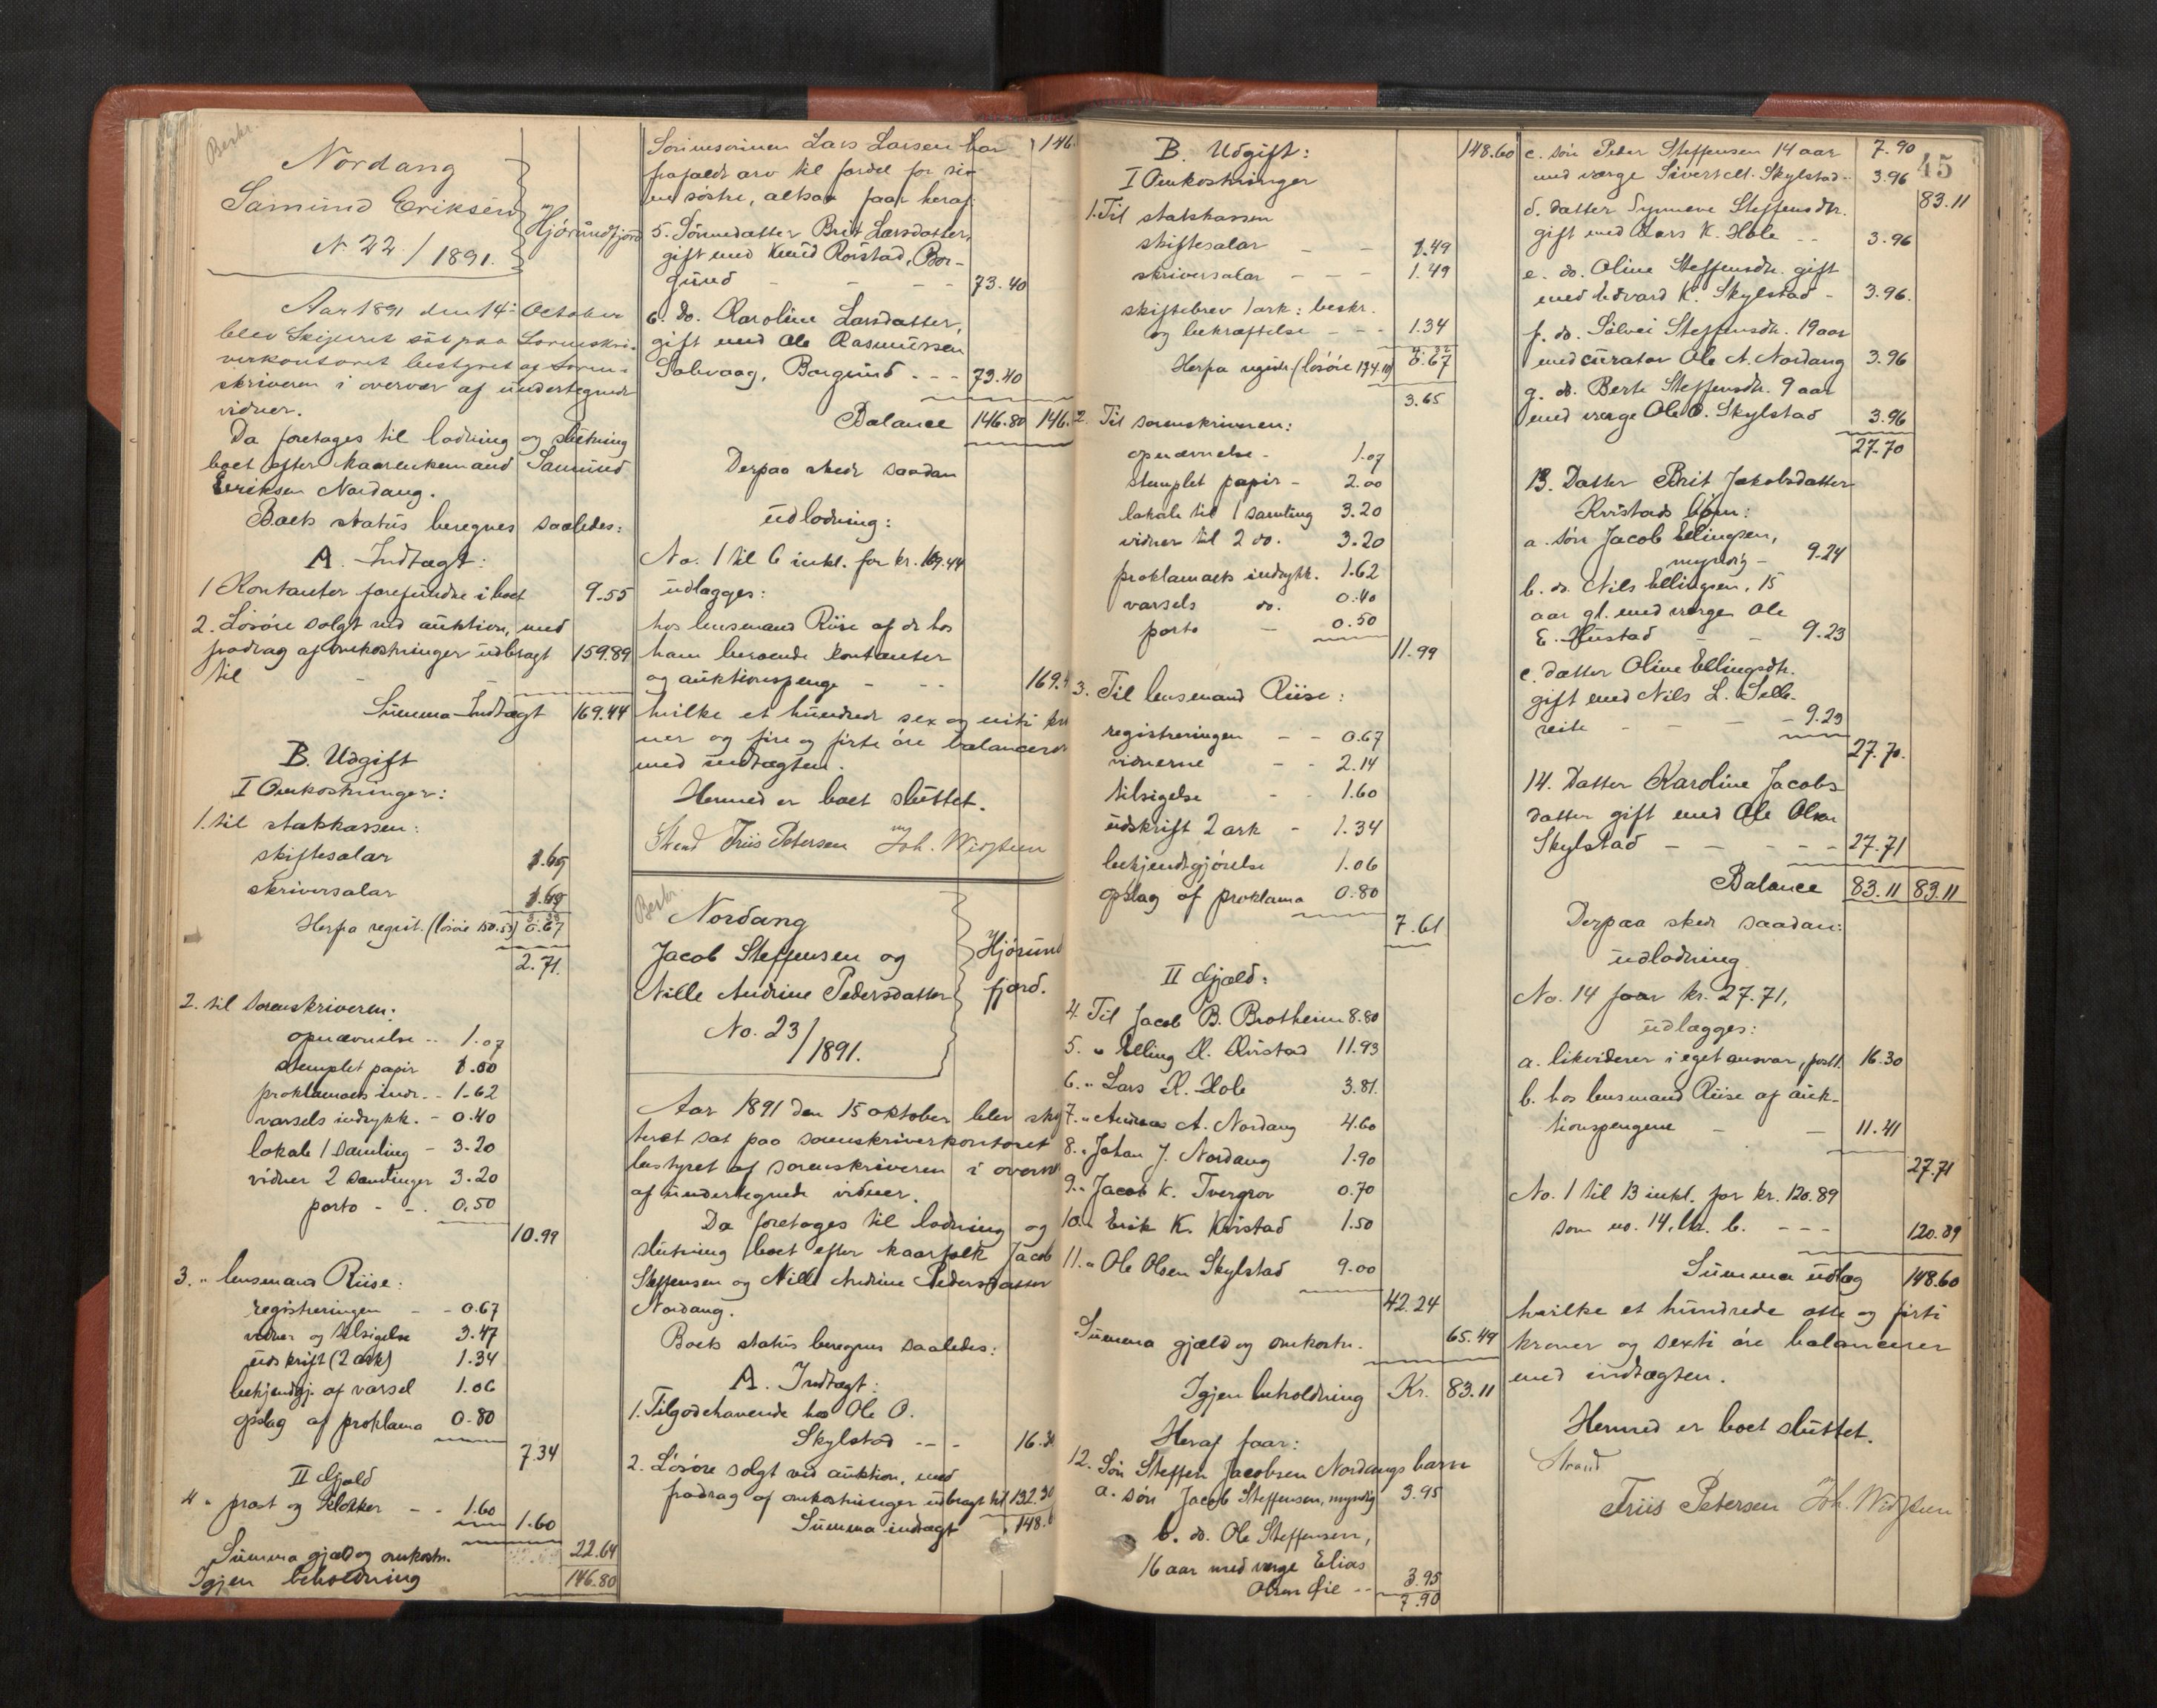 Beskr.
Nordang
Samund Eriksen
N. 22/1891.
Hjörundfjord
Aar 1891 den 14de October
blev Skifteret sat paa Sorenskri-
verkontoret bestyret af Soren-
skriveren i overvær af undertegnede
vidner.
Da foretages til lodning og slutning
boet efter kaarenkemand Samund
Eriksen Nordang.
Boets status beregnes saaledes:
A. Indtægt:
1 Kontanter forefundne i boet 9.55
2. Lösöre solgt ved auktion, med
fradrag af omkostninger udbragt
til - 159.89
Summa Indtægt 169.44
B. Udgift
I Omkostninger:
1. til statskassen:
skiftesalar 1.69
skriversalar 1.69
Herfra regist. (lösöre 150.53) 0.67
2.71
2. til sorenskriveren:
opnævnelse .. 1.07
stemplet papir 1.00
proklamaets indr. .. 1.62
varsels indrykk. - 0.40
lokale 1 samling - 3.20
vidner 2 samlinger 3.20
porto - - . 0.50
10.99
3. " lensmand Riise:
registreringen - - 0.67
vidner og tilsigelse 3.47
udskrift (2 ark) 1.34
bekjendtgj. af varsel 1.06
opslag af proklama 0.80
7.34
II Gjæld
4 " prest og klokker - - 1.60
1.60
Summa gjæld og omkostn. 22.64
Igjen beholdning 146.80
Sönnesönnen Lars Larsen har 146.
frafaldt arv til fordel for si-
ne söstre, altsaa faar heraf:
5. Sönnedatter Brit Larsdatter,
gift med Knud Rörstad, Bor-
gund - - - - 73.40
6. do. Karoline Larsdatter,
gift med Ole Rasmussen
Solevaag, Borgund . - - 73.40
Balance 146.80 146.
Derpaa skede saadan
udlodning:
No. 1 til 6 inkl. for kr. 169.44
udlægges:
hos lensmand Riise af de hos
ham beroende kontanter
og auktionspenge - - - 169.4
hvilke et hundrede sex og niti kro
ner og fire og firti öre balancerer
med indtægten.
Hermed er boet sluttet.
Strand Friis Petersen Joh. Widsteen
Beskr.
Nordang
Jacob Steffensen og
Nille Andrine Pedersdatter
No. 23/1891.
Hjörund
fjord.
Aar 1891 den 15 oktober blev skif
teret sat paa sorenskriverkontoret
bestyret af sorenskriveren i overvæ
af undertegnede vidner.
Da foretages til lodning og
slutning boet efter kaarfolk Jacob
Steffensen og Nille Andrine Pedersdatter
Nordang.
Boets status beregnes saaledes:
A. Indtægt:
1. Tilgodehavende hos Ole O.
Skylstad -- - 16.30
2. Lösöre solgt ved auktion, med
fradrag af omkostninger udbragt til 132.30
Summa indtægt 148.6
B. Udgift: 148.60
I Omkostninger
1. Til statskassen
skiftesalar - - - 1.49
skriversalar - - - 1.49
skiftebrev 1 ark: beskr.
og bekræftelse - - - 1.34
Herfra regist. (lösöre 134.10) 0.67
3.65
2. Til sorenskriveren:
opnævnelse - 1.07
stemplet papir - 2.00
lokale til 1 samling 3.20
vidner til 2 do. 3.20
proklamaets indrykk. 1.62
varsels do. 0.40
porto - 0.50
11.99
3. Til lensmand Riise:
registreringen - - 0.67
vidnerne - - 2.14
tilsigelse - - 1.60
udskrift 2 ark - 1.34
bekjendtgjörelse 1.06
opslag af proklama 0.80
7.61
II Gjæld:
4. Til Jacob B. Brotheim 8.80
5. " Elling K. Kvistad 11.93
6. " Lars K. Hole 3.81
7. " Andreas A. Nordang 4.60
8. " Johan J. Nordang 1.90
9. " Jacob K. Tvergrov 0.70
10. " Erik K. Kvistad 1.50
11. " Ole Olsen Skylstad 9.00
42.24
Summa gjæld og omkostn. 65.49
Igjen beholdning Kr. 83.11
Heraf faar:
12. Sön Steffen Jacobsen Nordangs barn
a. sön Jacob Steffensen, myndig 3.95
b. do. Ole Steffensen,
16 aar med værge Elias
Olsen Öie -- 3.95
7.90
45
c. sön Peder Steffensen 14 aar 7.90
med værge Sivert Skylstad .. 3.96
83.11
d. datter Synneve Steffensdtr.
gift med Lars K. Hole -- 3.96
e. do. Oline Steffensdtr. gift
med Edvard K. Skylstad - 3.96.
f. do. Sölvei Steffensdtr. 19 aar
med curator Ole A. Nordang 3.96
g. do. Berte Steffensdtr. 9 aar
med værge Ole O. Skylstad 3.96
27.70
13. Datter Brit Jakobsdatter
Kvistads börn:
a. sön Jacob Ellingsen,
myndig - 9.24
b. do. Nils Ellingsen, 15
aar gl. med værge Ole
E. Hustad - - 9.23
c. datter Oline Ellingsdtr.
gift med Nils L. Selle-
reite - - - - 9.23
27.70.
14. Datter Karoline Jacobs
datter gift med Ole Olsen
Skylstad - - - - - 27.71
Balance 83.11 83.11
Derpaa skede saadan:
udlodning
No. 14 faar kr. 27.71,
udlægges:
a. likviderer i eget ansvar, post 1. 16.30
b. hos lensmand Riise af auk-
tionspengene - - 11.41
27.71
No. 1 til 13 inkl. for kr. 120.89
som no. 14, ltr. b. - - - 120.89
Summa udlæg 148.60
hvilke et hundrede otte og firti
kroner og sexti öre balancerer
med indtægten.
Hermed er boet sluttet.
Strand
Friis Petersen Joh. Widsteen